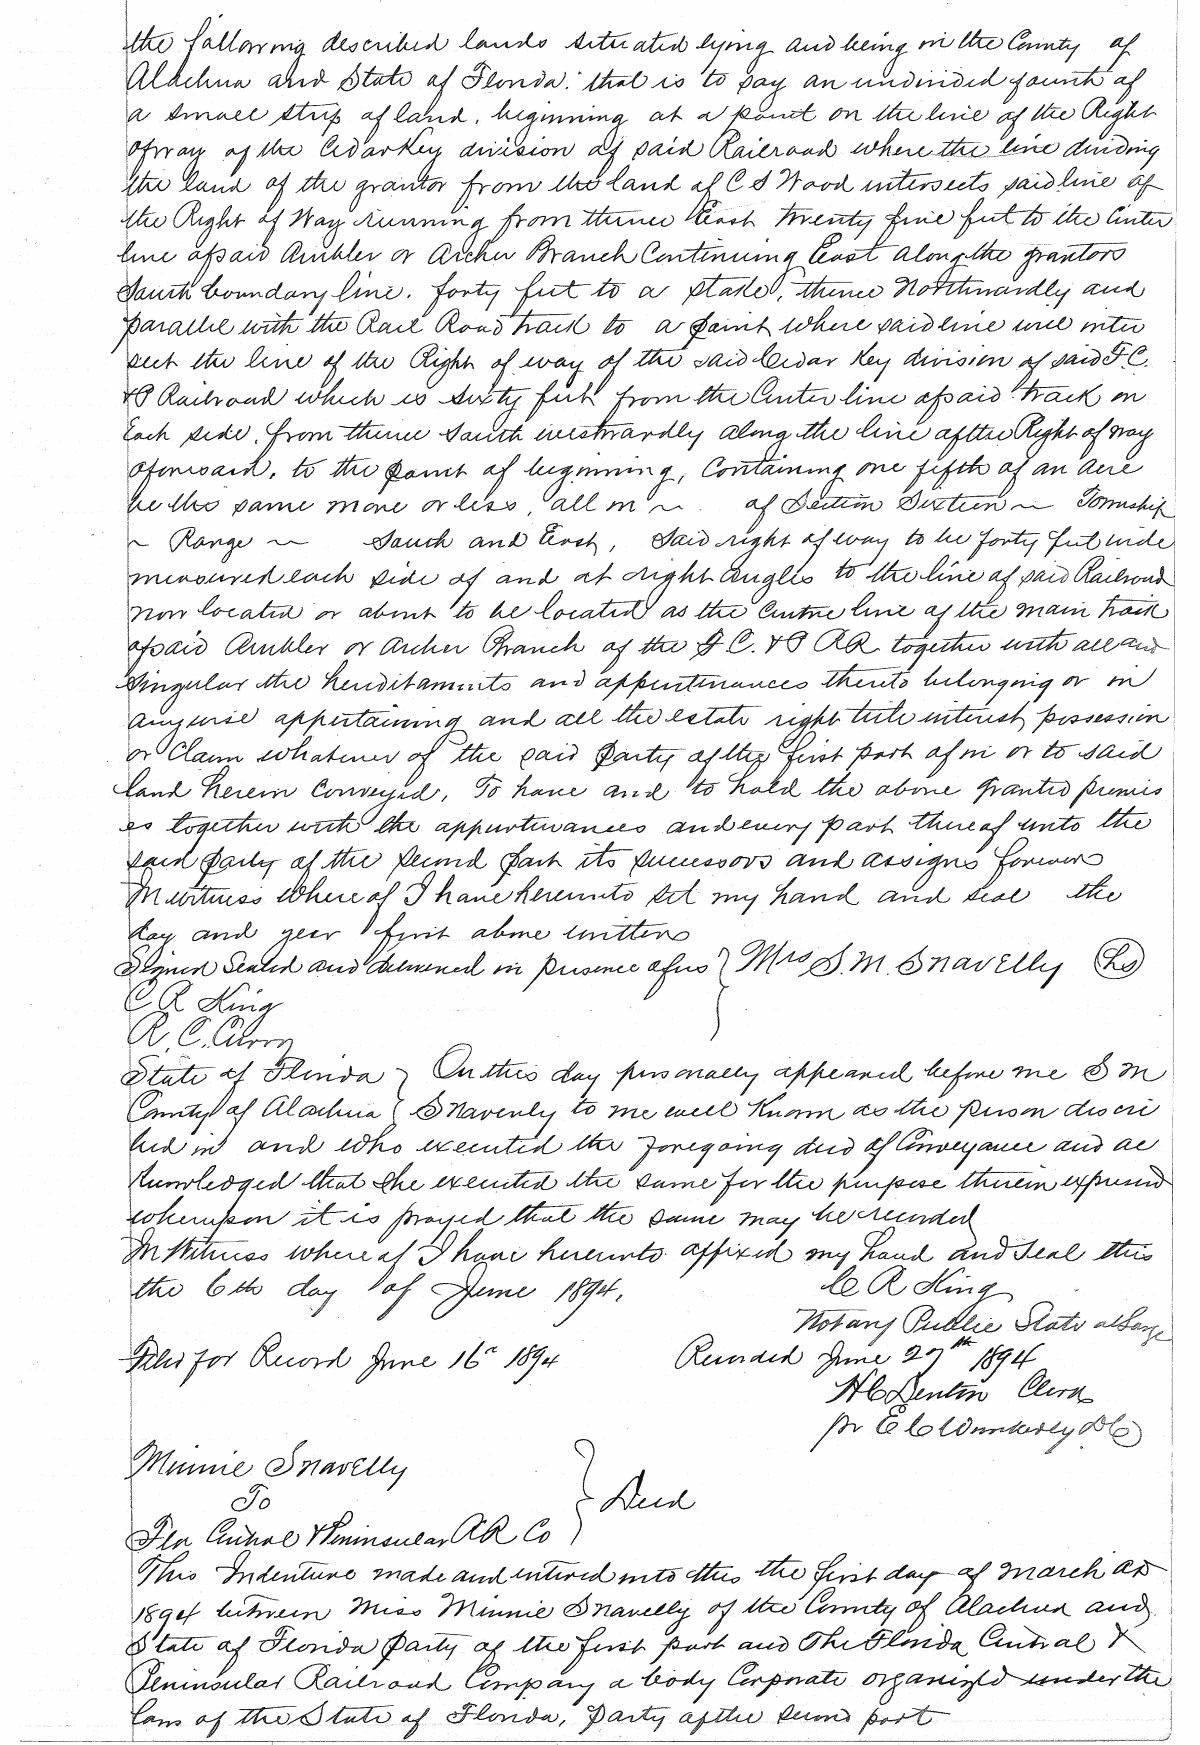 the following described lands situated lying and being in the County of
Alachua and State of Florida: that is to say an undivided fourth of
a small strip of land, beginning at a point on the line of the Right
of way of the Cedar Key division of said Railroad where the line dividing
the land of the grantor from the land of C S Wood intersects said line of
the Right of Way running from thence East twenty five feet to the Center
line of said Ambler or Archer Branch Continuing East along the grantors
South boundary line. forty feet to a stake, thence Northwardly and
parallel with the Rail Road track to a point where said line will inter
sect the line of the Right of way of the said Cedar Key division of said F.C.
& P Railroad which is sixty feet from the Center line of said track on
Each side, from thence South westwardly along the line of the Right of way
aforesaid, to the point of beginning, Containing one fifth of an acre
be the same more or less, all in ~ of Section Sixteen ~ Township
~ Range ~ South and East, Said right of way to be forty feet wide
measured each side of and at right angles to the line of said Railroad
now located or about to be located as the Centre line of the main track
of said Ambler or Archer Branch of the F C. & P RR together with all and
Singular the hereditaments and appurtenances thereto belonging or in
anywise appertaining and all the estate right title interest possession
or Claim whatever of the said party of the first part of in or to said
land herein Conveyed, To have and to hold the above granted premis
es together with the appurtenances and every part thereof unto the
said party of the second part its successors and assigns forever
In witness where of I have hereunto set my hand and seal the
day and year first above written
Signed Sealed and delivered in presence of us } Mrs S. M. Snavelly (LS)
C R King
R. C.
State of Florida } On this day personally appeared before me S M
County of Alachua { Snavenly to me well Known as the person descri
bed in and who executed the foregoing deed of Conveyance and ac
knowledged that She executed the same for the purpose therein expressed
whereupon it is prayed that the same may be recorded
In Witness where of I have hereunto affixed my hand and Seal this
the 6th day of June 1894.
C R King
Notary Public State at Large
Filed for Record June 16" 1894 Recorded June 27th 1894
H C Denton Clerk
pr E C DC
Minnie Snavelly
To } Deed
Fla Central & Peninsular RR Co
This Indenture made and entered into this the first day of March AD
1894 between Miss Minnie Snavelly of the County of Alachua and
State of Florida party of the first part and The Florida Central &
Peninsular Railroad Company a body Corporate organized under the
laws of the State of Florida, party of the second part